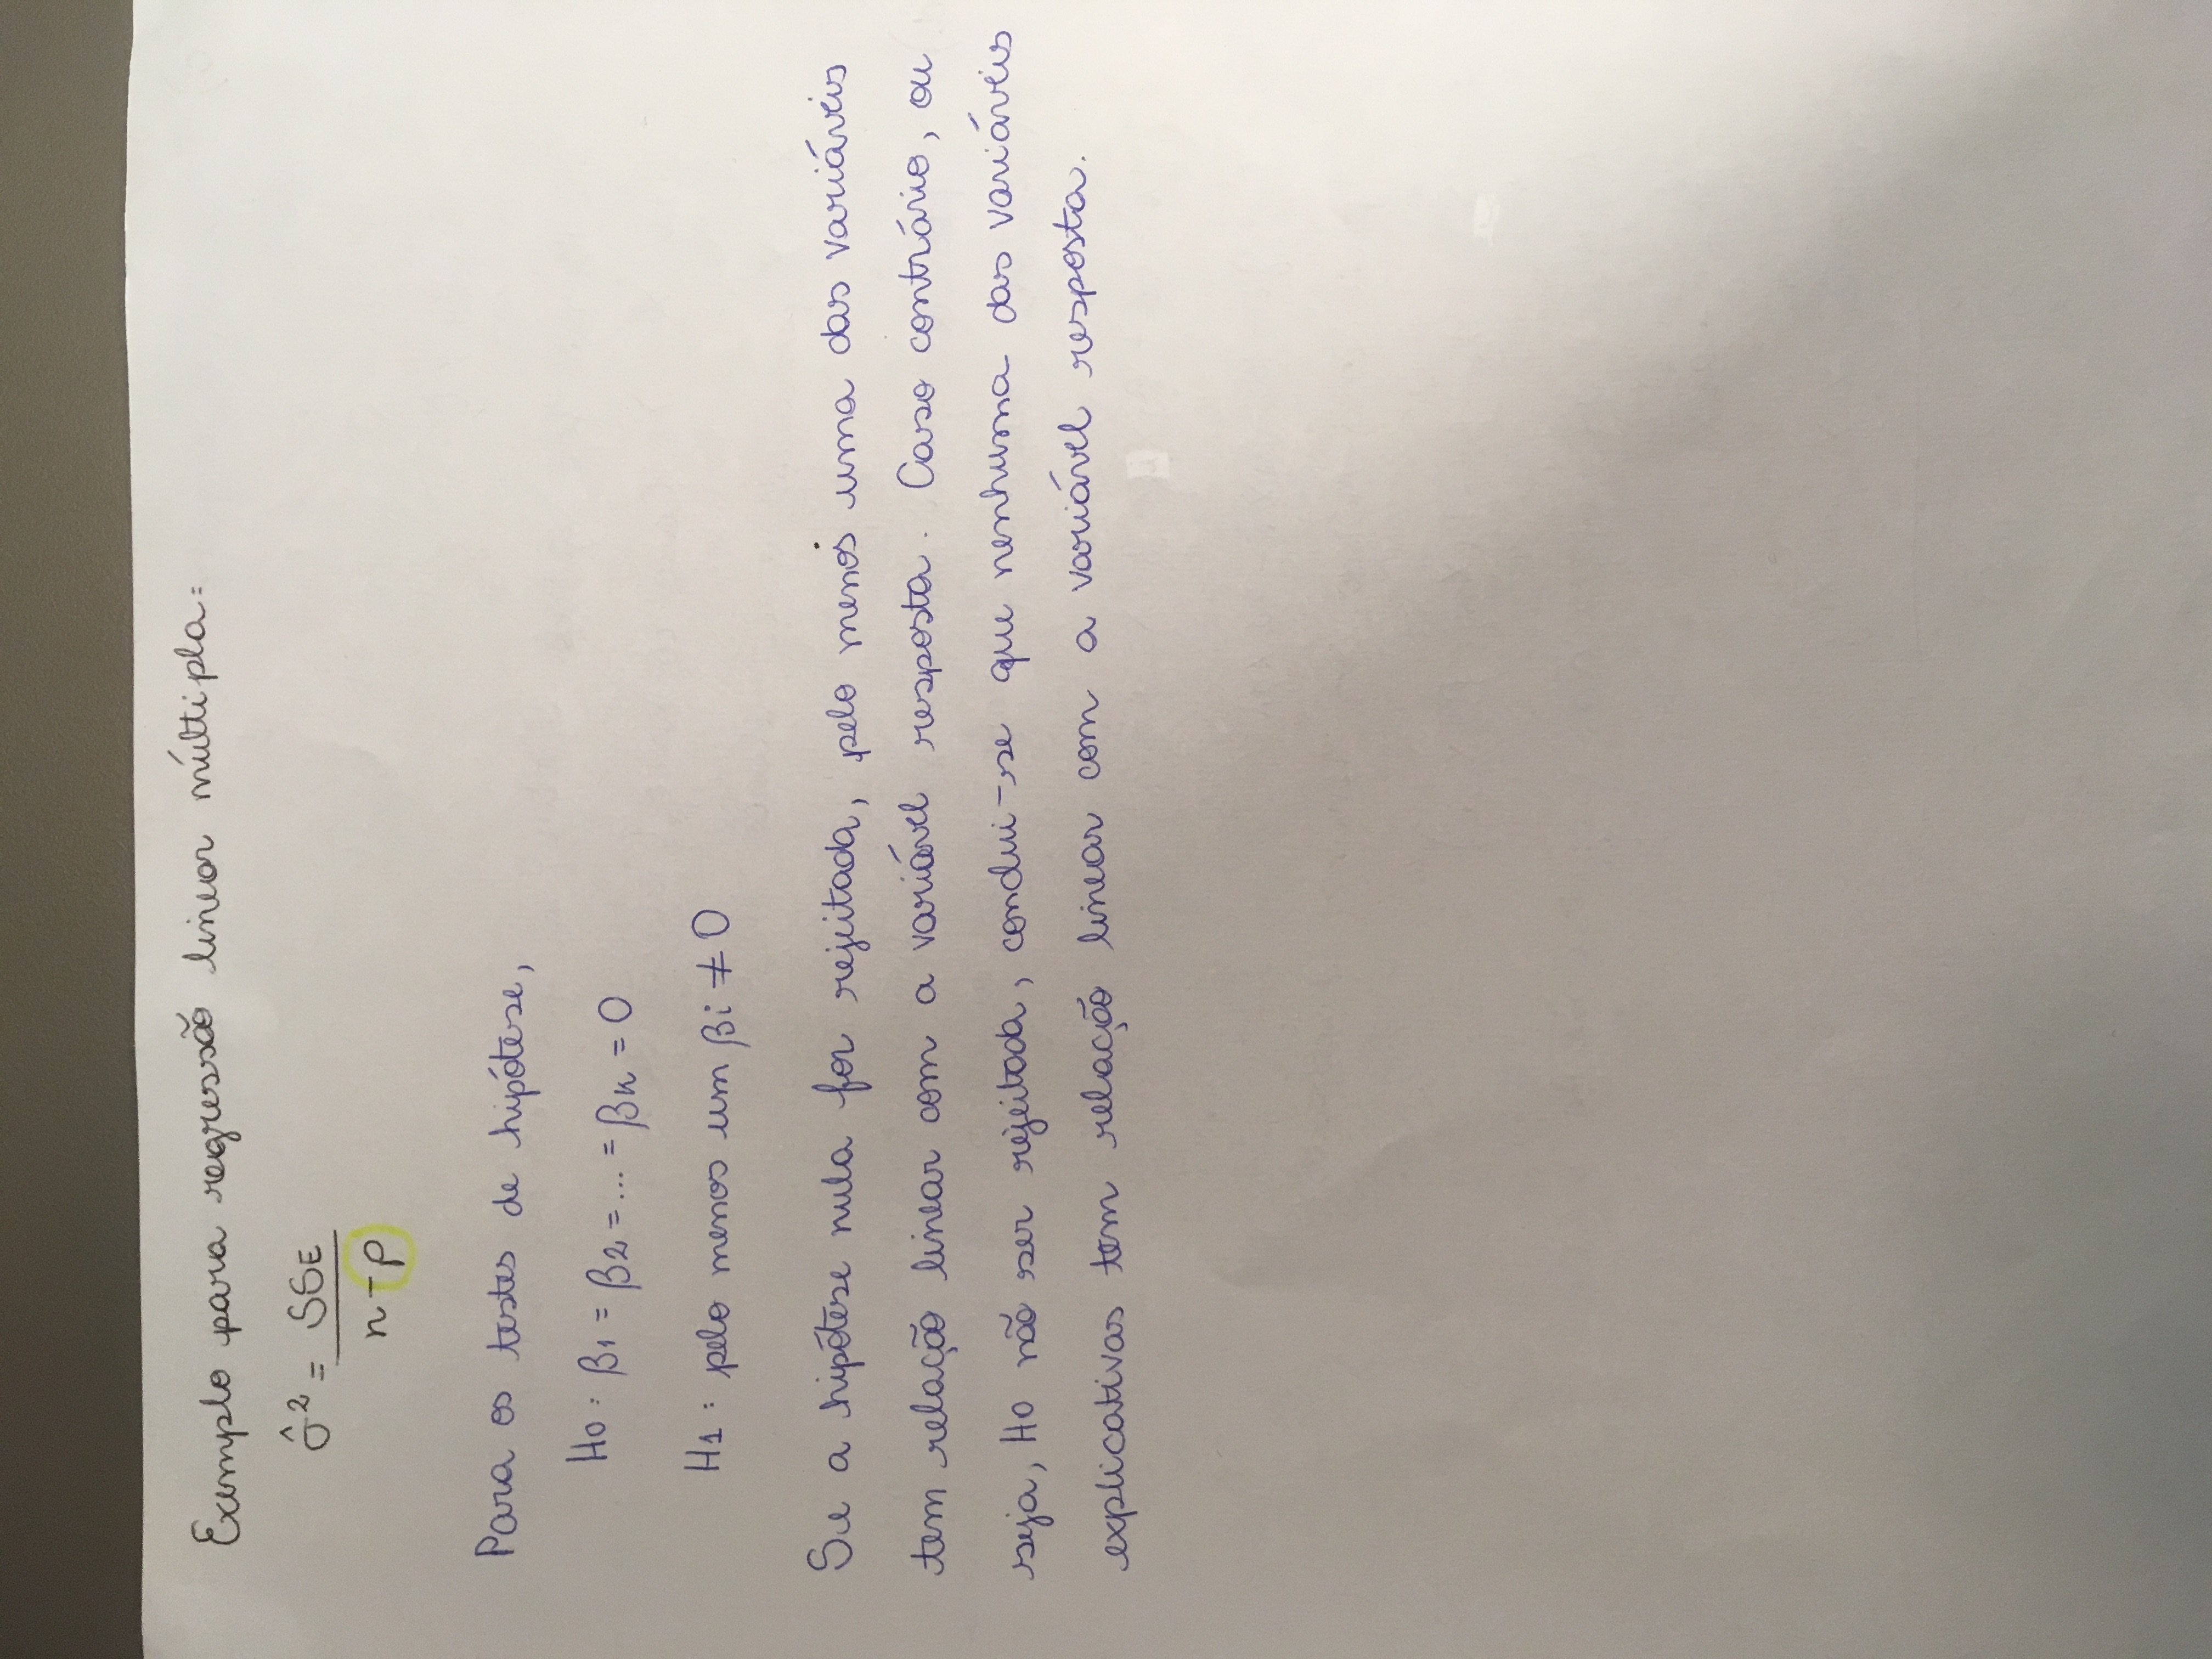 Exemplo para regressão linear múltipla:
σ̂² = SSE
n - p
Para os testes de hipótese,
H0: β1 = β2 = ... = βk = 0
H1: pelo menos um βi ≠ 0
Se a hipótese nula for rejeitada, pelo menos uma das variáveis
tem relação linear com a variável resposta. Caso contrário, ou
seja, H0 não ser rejeitada, conclui-se que nenhuma das variáveis
explicativas tem relação linear com a variável resposta.